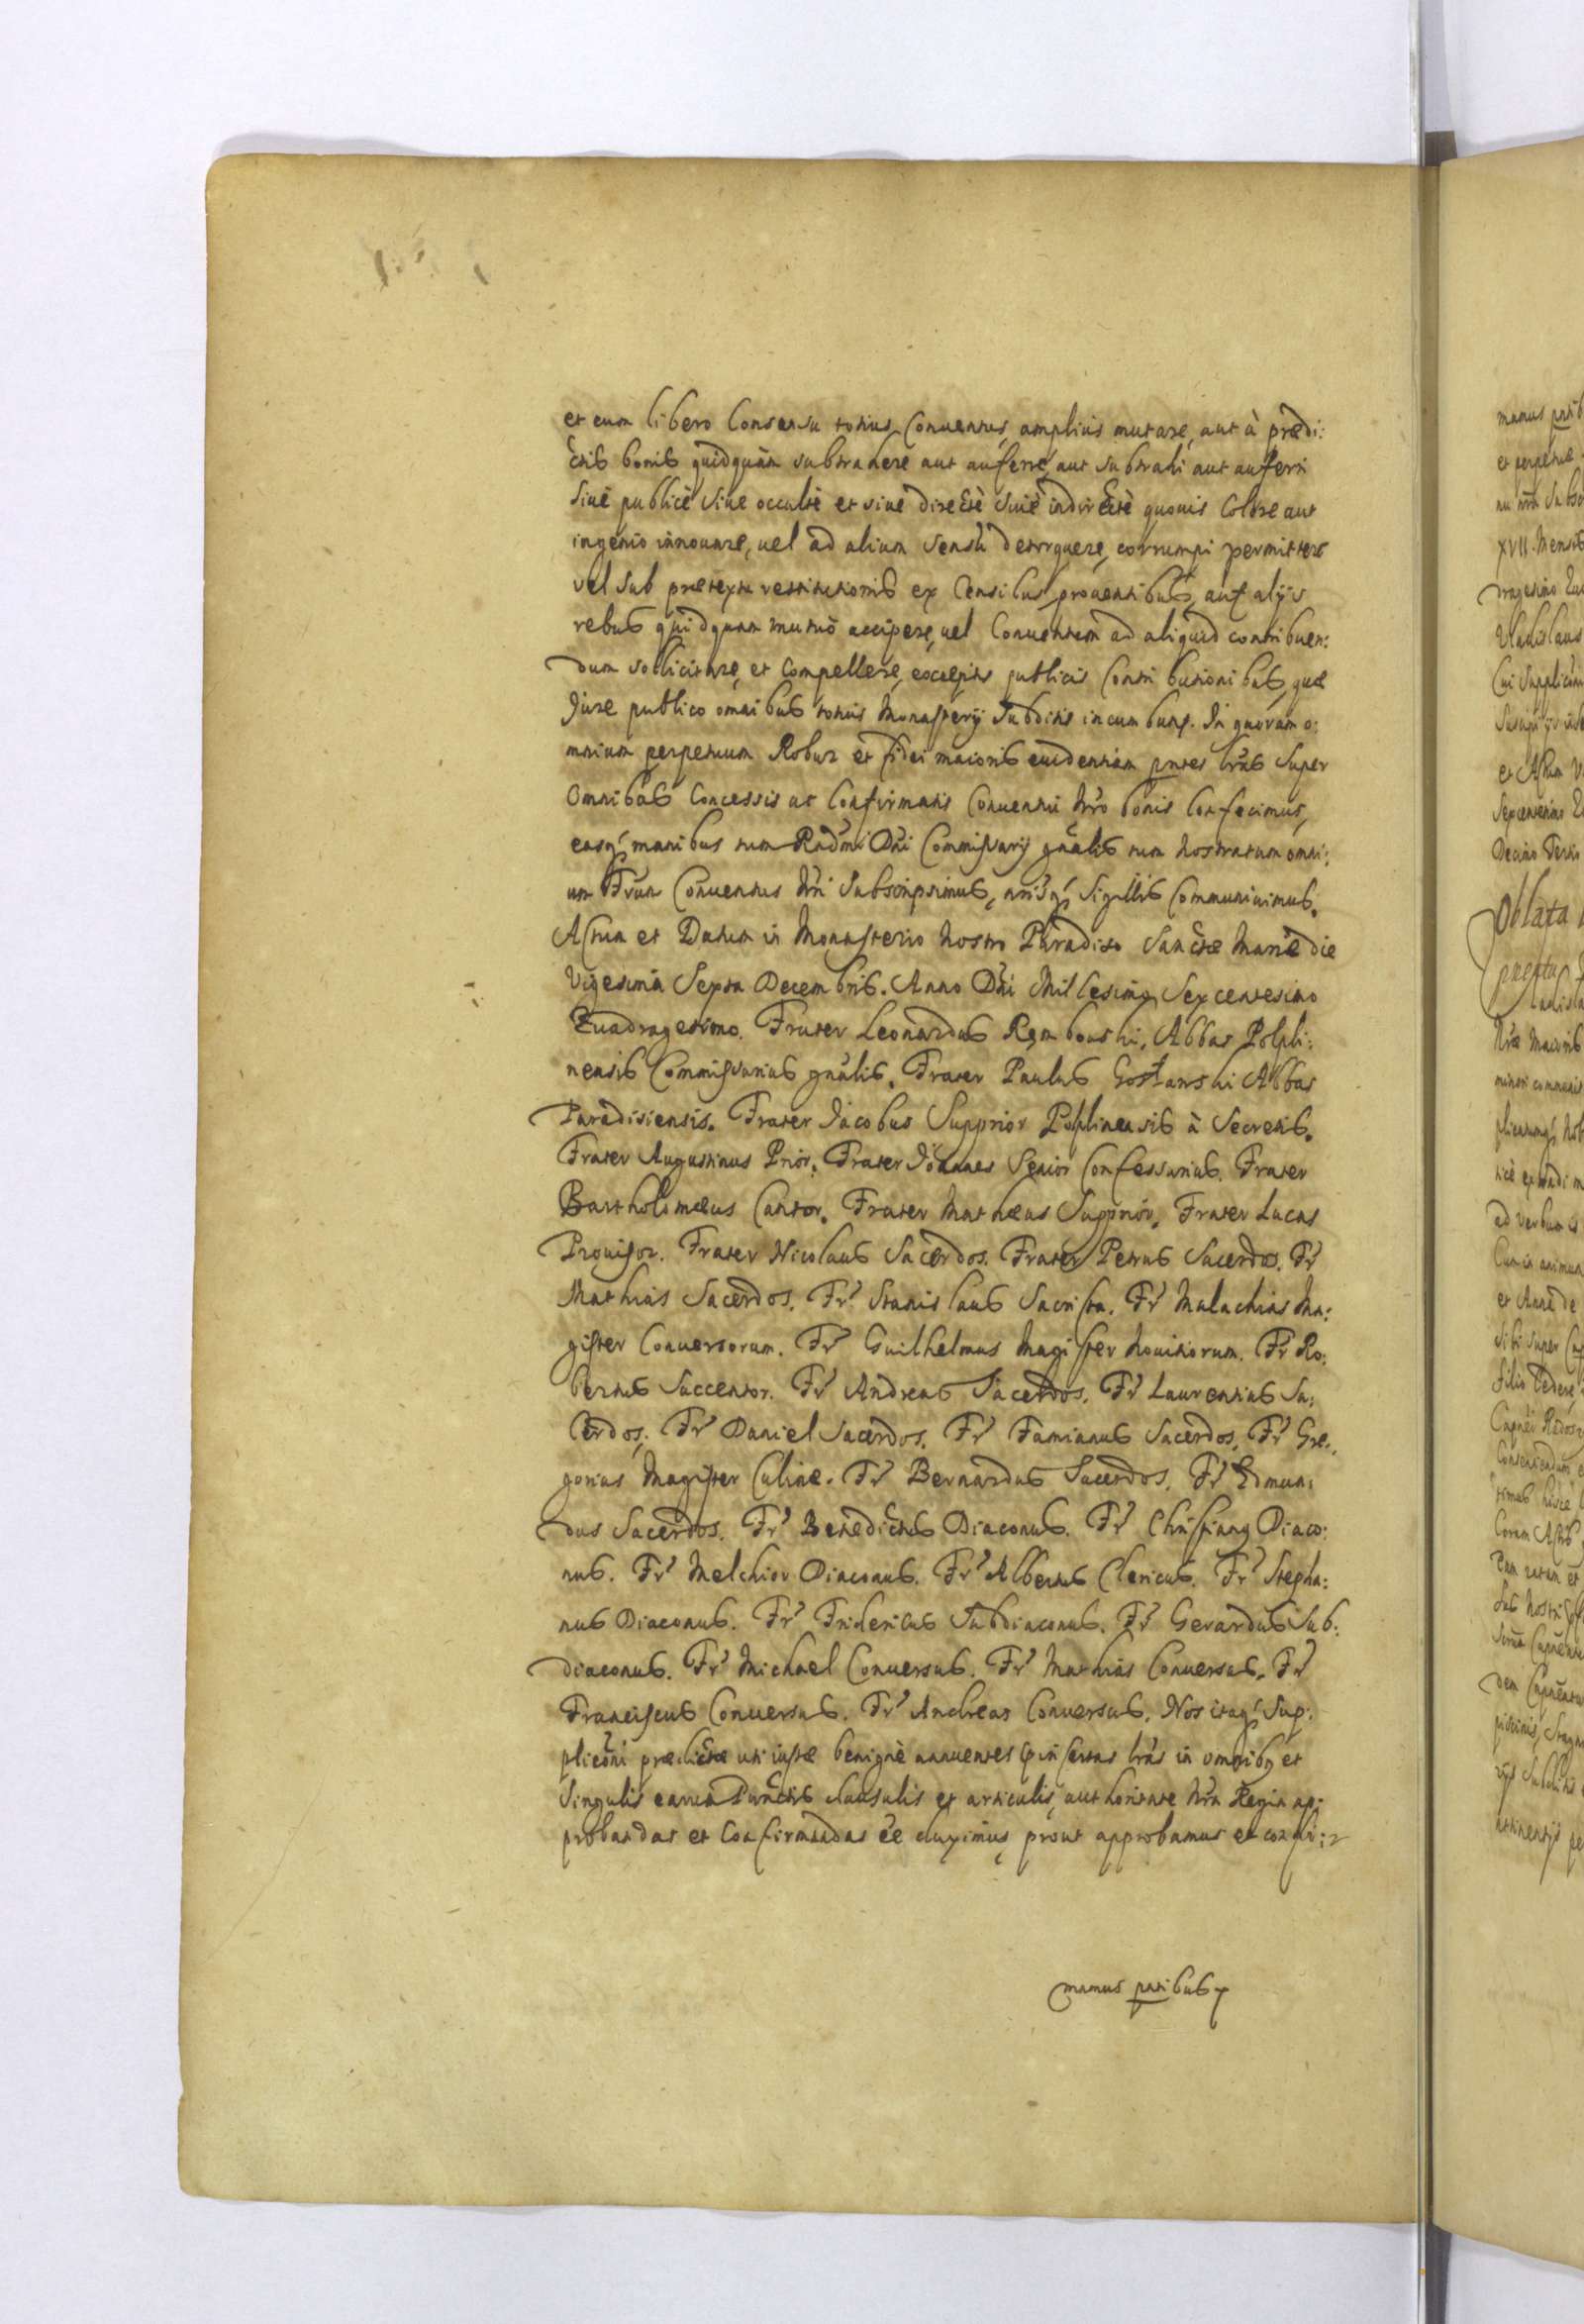 et cum libero Consensu totius Conuentus, amplius mutare, aut à prædi:
ctis bonis quidquàm subtrahere aut auferre, aut subtrahi aut auferri
siuè publicè siue occultè et siuè directè siuè indirectè quouis Colore aut
ingenio innouare, uel ad alium sensũ detorquere, corrumpi permittere
vel sub prætextu restitutionis ex Censibus, prouentibus, aut alijs
rebus quidquam mutuò accipere, uel Conuentum ad aliquid contribuen:
dum sollicitare, et Compellere, exceptis publicis Contributionibus, quæ
Jure publico omnibus totius Monasterij Subditis incumbunt. In quorum o:
mnium perpetuum Robur et fidei maioris euidentiam pntes lrãs super
Omnibus Concessis ac Confirmatis Conuentui nr̃o bonis Confecimus,
easq3 manibus tum Rndmi Dñi Commissarij gnãlis tum nostratum omni:
um Frũm Conuentus nr̃i subscripsimus, nrisq3 Sigillis Communiuimus.
Actum et Datum in Monasterio nostro Paradiso Sanctæ Mariæ die
Vigesima Sexta Decembris. Anno Dñi Millesimo Sexcentesimo
Quadragesimo. Frater Leonardus Rembowski, Abbas Polpli:
nensis Commissarius gnãlis. Frater Paulus Gostawski Abbas
Paradisiensis. Frater Jacobus Supprior Poplinensis à Secretis.
Frater Augustinus Prior. Frater Joannes Senior Confessarius. Frater
Bartholomæus Cantor. Frater Mathæus Supprior. Frater Lucas
Prouisor. Frater Nicolaus Sacerdos. Frater Petrus Sacerdos. Fr
Mathias Sacerdos. Fr Stanislaus Sacrista. Fr Malachias Ma:
gister Conuersorum. Fr Guilhelmus Magister Nouitiorum. Fr Ro:
bertus Succentor. Fr Andreas Sacerdos. Fr Laurentius Sa:
cerdos. Fr Daniel Sacerdos. Fr Famianus Sacerdos. Fr Gre:
gorius Magister Culinæ. Fr Bernardus Sacerdos. Fr Edmun:
dus Sacerdos. Fr Benedictus Diaconus. Fr Christiang Diaco:
nus. Fr Melchior Diaconus. Fr Albertus Clericus. Fr Stepha:
nus Diaconus. Fr Fridericus Subdiaconus. Fr Gerardus Sub:
diaconus. Fr Michael Conuersus. Fr Mathias Conuersus. Fr
Franciscus Conuersus. Fr Andreas Conuersus. Nos itaq3 Sup:
plicõni prædictæ uti iustæ benignè annuentes insertas lrãs in omnibg et
singulis earum Punctis clausulis et articulis, authoritate nr̃a Regia ap:
probandas et Confirmandas eẽ duximus, prout approbamus et confir:
mamus pntibus